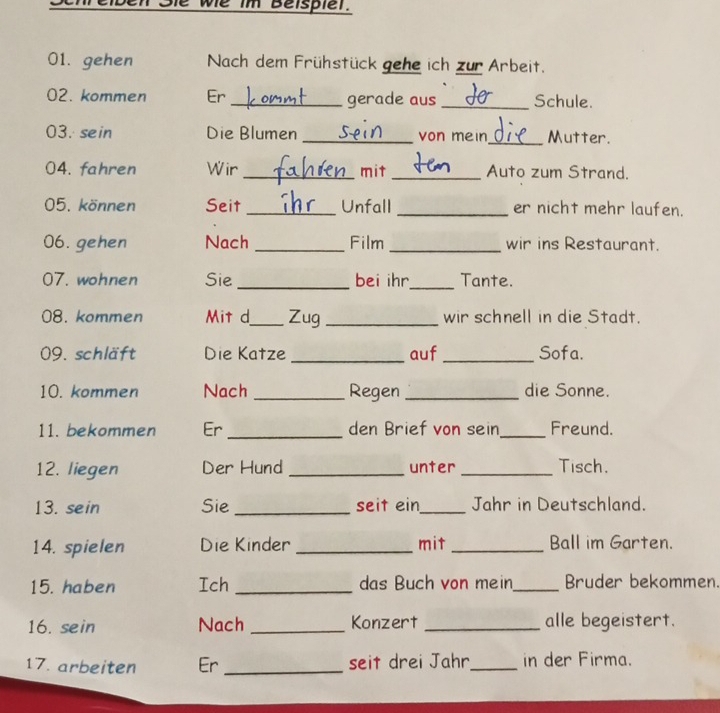 Schreiben Sie wie im Beispiel.
01. gehen Nach dem Frühstück gehe ich zur Arbeit.
02. kommen Er kommt gerade aus der Schule.
03. sein Die Blumen sein von mein die Mutter.
04. fahren Wir fahren mit dem Auto zum Strand.
05. können Seit ihr Unfall ______ er nicht mehr laufen.
06. gehen Nach ______ Film ______ wir ins Restaurant.
07. wohnen Sie ______ bei ihr____ Tante.
08. kommen Mit d___ Zug ______ wir schnell in die Stadt.
09. schläft Die Katze ______ auf ______ Sofa.
10. kommen Nach ______ Regen ______ die Sonne.
11. bekommen Er ______ den Brief von sein____ Freund.
12. liegen Der Hund ______ unter ______ Tisch.
13. sein Sie ______ seit ein____ Jahr in Deutschland.
14. spielen Die Kinder ______ mit ______ Ball im Garten.
15. haben Ich ______ das Buch von mein____ Bruder bekommen.
16. sein Nach ______ Konzert ______ alle begeistert.
17. arbeiten Er ______ seit drei Jahr____ in der Firma.